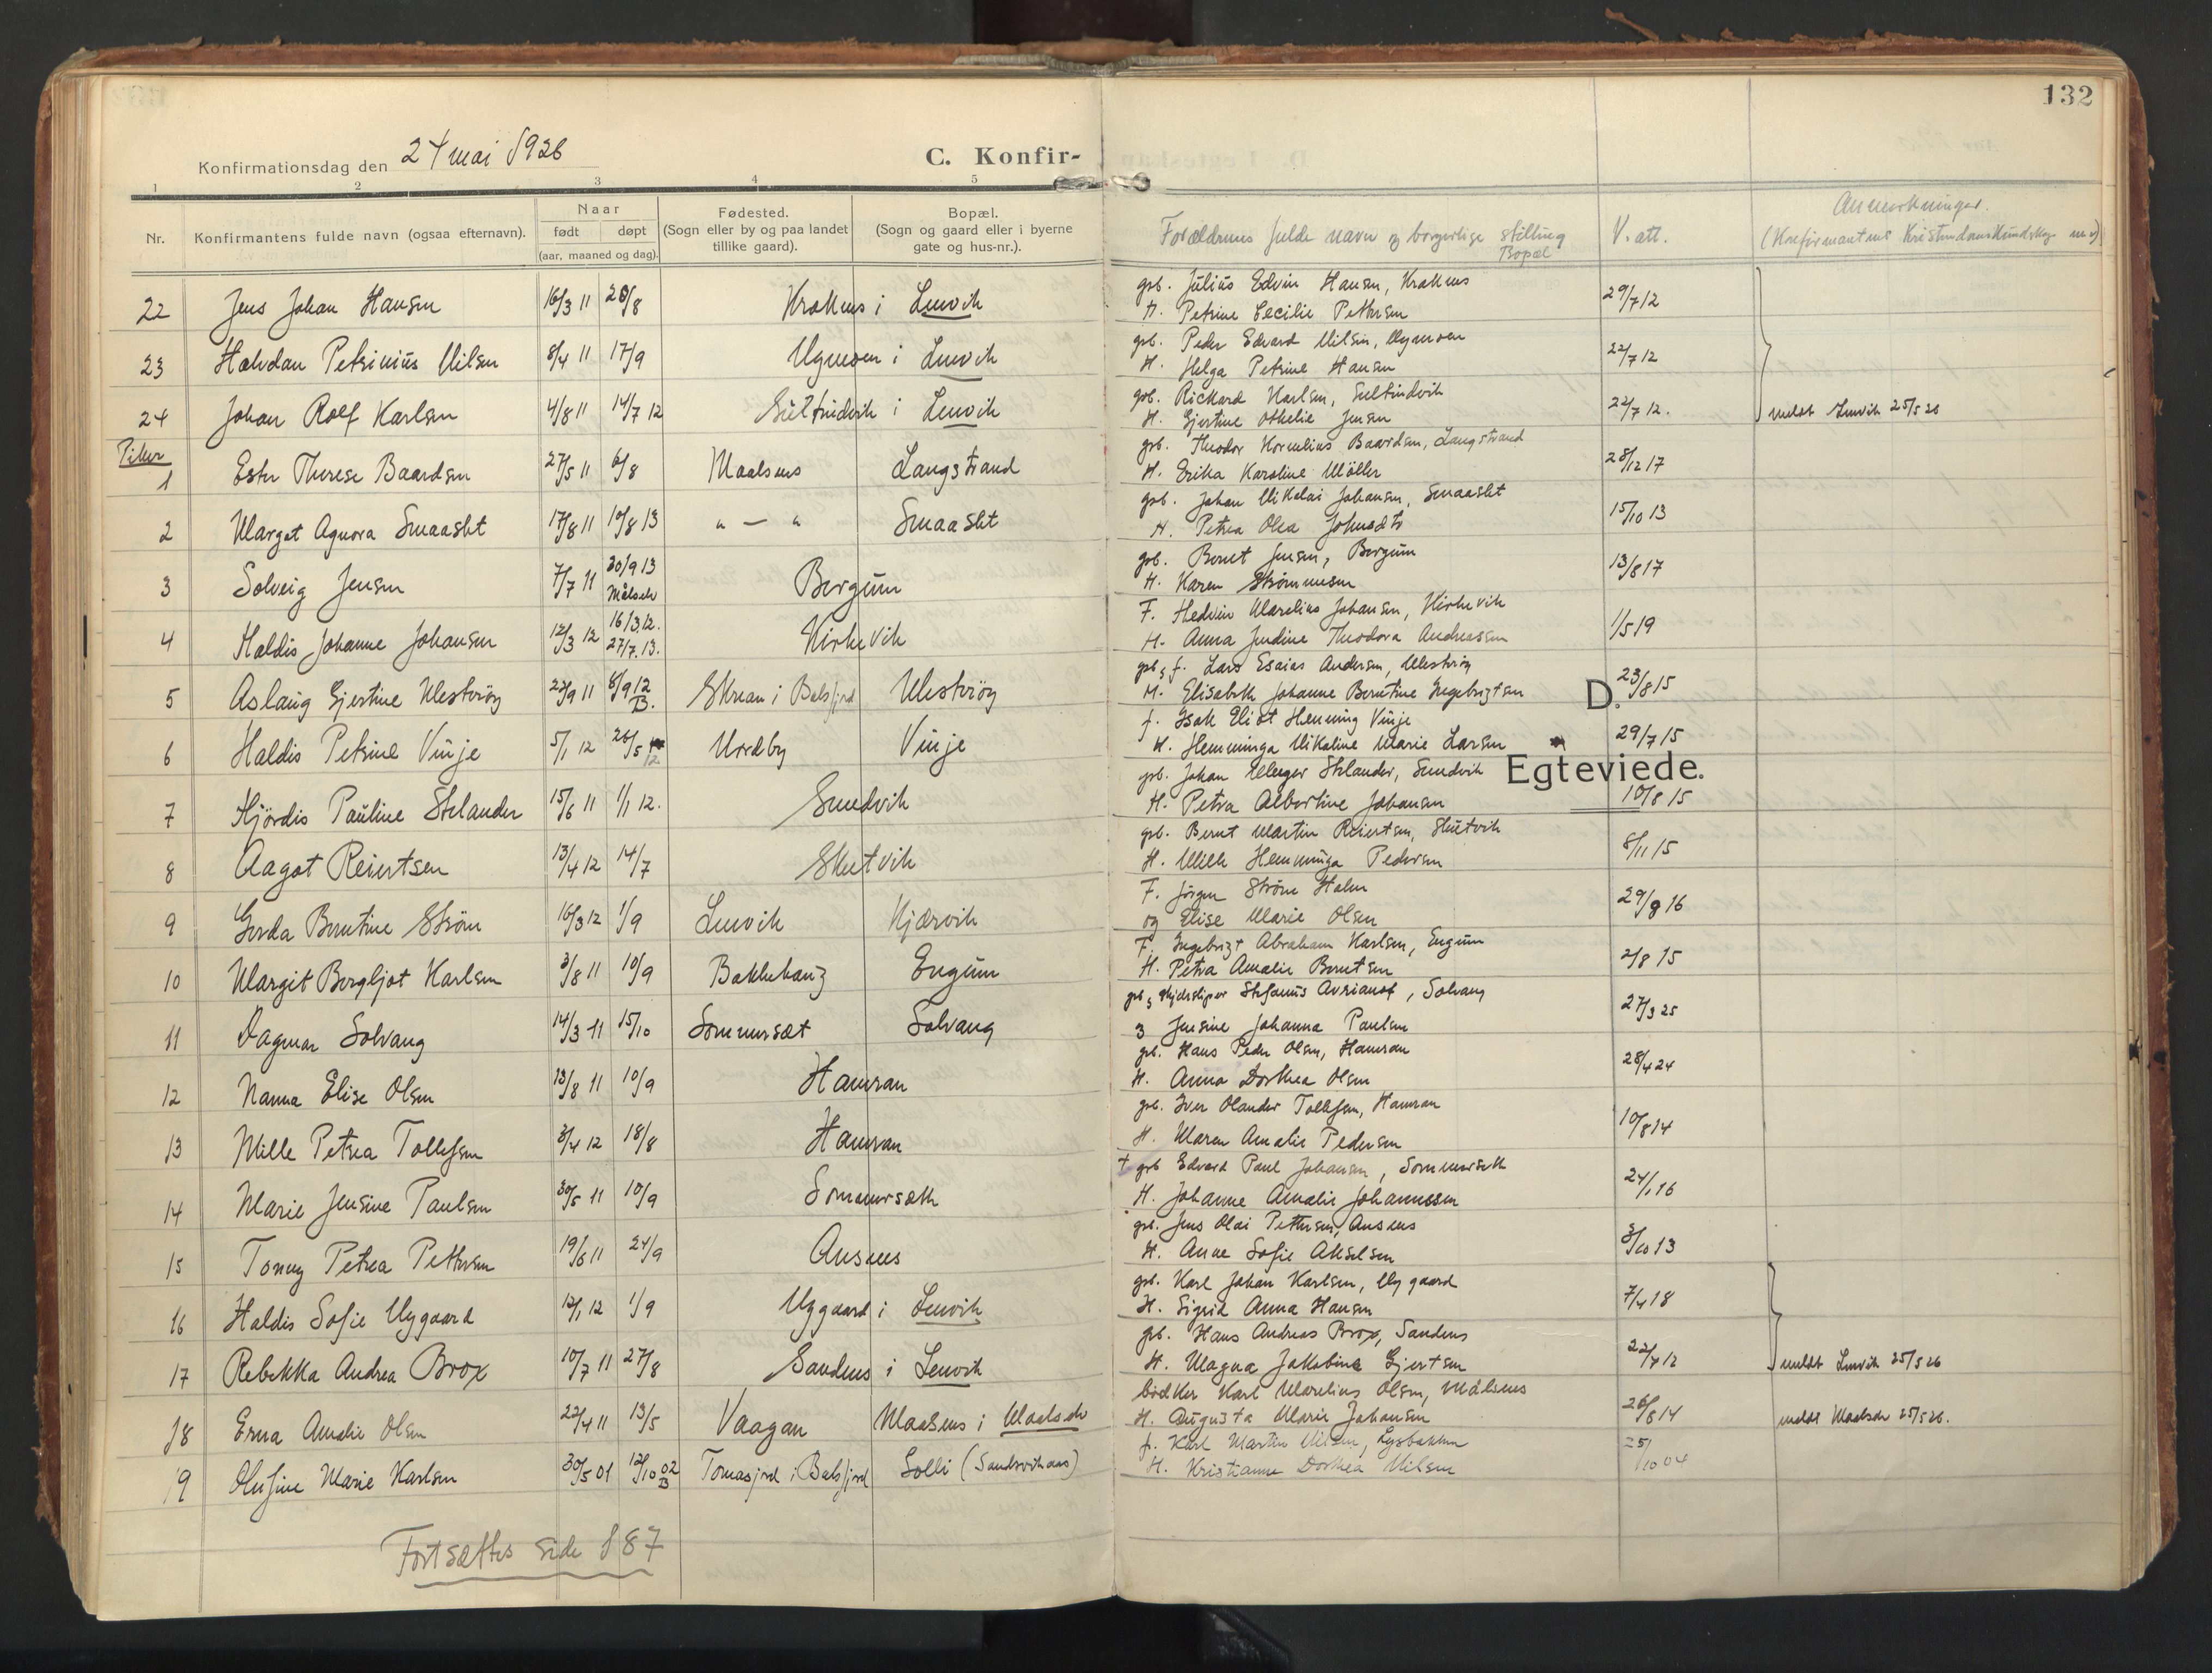 132
Konfirmationsdag den 24 mai 1926
C. Konfir-
1 2 3 4 5
Nr. Konfirmantens fulde navn (ogsaa efternavn). Naar født døpt (aar, maaned og dag). Fødested. (Sogn eller by og paa landet tillike gaard). Bopæl. (Sogn og gaard eller i byerne gate og hus-nr.).
Forældrenes fulde navn og borgerlige stilling Bopæl V. att. Anmerkninger. (Konfirmantens Kristendomskundskap m.v)
22 Jens Johan Hansen 16/3 11 20/8 Kraknes i Lenvik grb. Julius Edvin Hansen, Kraknes 29/7 12
H. Petrine Cecilie Pettersen
23 Halvdan Petrinius Nilsen 8/4 11 17/9 Nymoen i Lenvik grb. Peder Edvard Nilsen, Nymoen 22/7 12
H. Helga Petrine Hansen
24 Johan Rolf Karlsen 4/8 11 14/7 12 Sultindvik i Lenvik grb. Rickard Karlsen, Sultindvik 22/7 12. meldt Lenvik 25/5 26
H. Gjertine Othelie Jensen
Piker
1 Ester Therese Baardsen 27/5 11 6/8 Maalsnes Langstrand grb. Theodor Kornelius Baardsen, Langstrand 28/12 17
H. Erika Karoline Møller
2 Margot Agnora Smaaslet 17/8 11 10/8 13 " — " Smaaslet grb. Johan Nikolai Johansen, Smaaslet 15/10 13
H. Petra Olea Johnsdtr
3 Solveig Jensen 7/7 11 30/9 13 Målselv Bergum grb. Bernt Jensen, Bergum 13/8 17
H. Karen Strømmesen
4 Haldis Johanne Johansen 12/3 12 16/3.12. 27/7.13. Kirkevik F. Hedvin Marelius Johansen, Kirkevik 1/5 19
H. Anna Jendine Theodora Andreassen
5 Aslaug Gjertine Mestvøy 22/9 11 8/9 12 B. Skrean i Balsfjord Mestvøy grb, f. Lars Esaias Andersen, Mestvøy 23/8 15
H. Elisabeth Johanne Berntine Ingebrigtsen
D.
6 Haldis Petrine Vinje 5/1 12 26/5 12 Nordby Vinje f. Isak Eliot Henning Vinje 29/7 15
H. Hemminga Nikoline Marie Larsen
Egteviede.
7 Hjördis Pauline Stelander 15/6 11 1/1 12. Sundvik grb. Johan Elleger Stelander, Sundvik 10/8 15
H. Petra Albertine Johansen
8 Aagot Reiertsen 13/4 12 14/7 Skutvik grb. Bernt Martin Reiertsen, Skutvik 8/11 15
H. Mille Hemminga Pedersen
9 Gerda Berntine Strøm 16/3 12 1/9 Lenvik Kjærvik F. Jørgen Strøm Holm 29/8 16
og Elise Marie Olsen
10 Margit Bergljot Karlsen 3/8 11 10/9 Bakkehaug Engum F. Ingebrigt Abraham Karlsen, Engum 2/8 15
H. Petra Amalie Berntsen
11 Dagmar Solvang 14/3 11 15/10 Sommersæt Solvang grb, Stefanus Avrianof, Solvang 27/3 25
Jensine Johanna Paulsen
12 Nanna Elise Olsen 13/8 11 10/9 Hamran grb. Hans Peder Olsen, Hamran 28/4 24
H. Anna Dorthea Olsen
13 Mille Petrea Tollefsen 3/4 12 18/8 Hamran grb. Iver Olander Tollefsen, Hamran 10/8 14
H. Maren Amalie Pedersen
14 Marie Jensine Paulsen 30/5 11 10/9 Sommersæth † grb Edvard Paul Johansen, Sommerseth 24/1 16
H. Johanne Amalie Johannessen
15 Tonny Petrea Pettersen 19/6 11 24/9 Ansnes grb. Jens Olai Pettersen, Ansnes 3/10 13
H. Anne Sofie Akselsen
16 Haldis Sofie Nygaard 12/1 12 1/9 Nygaard i Lenvik grb. Karl Johan Karlsen, Nygaard 7/4 18
H. Sigrid Anna Hansen
17 Rebekka Andrea Brox 10/7 11 27/8 Sandnes i Lenvik grb. Hans Andreas Brox, Sandnes 22/4 12 meldt Lenvik 25/5 26
H. Magna Jakobine Gjertsen
18 Erna Amalie Olsen 22/4 11 13/5 Vaagan Maalsnes i Maalselv bødker Karl Marelius Olsen, Målsnes 26/8 14 meldt Maalselv 25/5 26.
H. Augusta Marie Johansen
19 Olufine Marie Karlsen 30/5 01 12/10 02 B Tomasjord i Balsfjord Solli (Sandsvikaas) f. Karl Martin Nilsen, Lysbakken 25/10 04
H. Kristianne Dorthea Nilsen
Fortsættes side 187